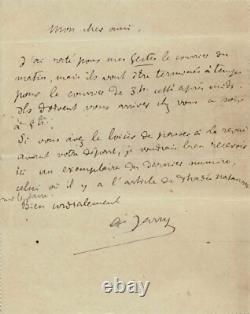 Mon cher ami,
J'ai raté pour mes Gestes le courrier du
matin, mais ils vont être terminés à temps
pour le courrier de 3h. cette après-midi.
Ils doivent vous arriver chez vous ce soir
à 8h.
Si vous avez le loisir de passer à la revue
avant votre départ, je voudrais bien recevoir
ici un exemplaire du dernier numéro,
celui où il y a l'article de Thadée Natanson
sur
Bien cordialement
A Jarry